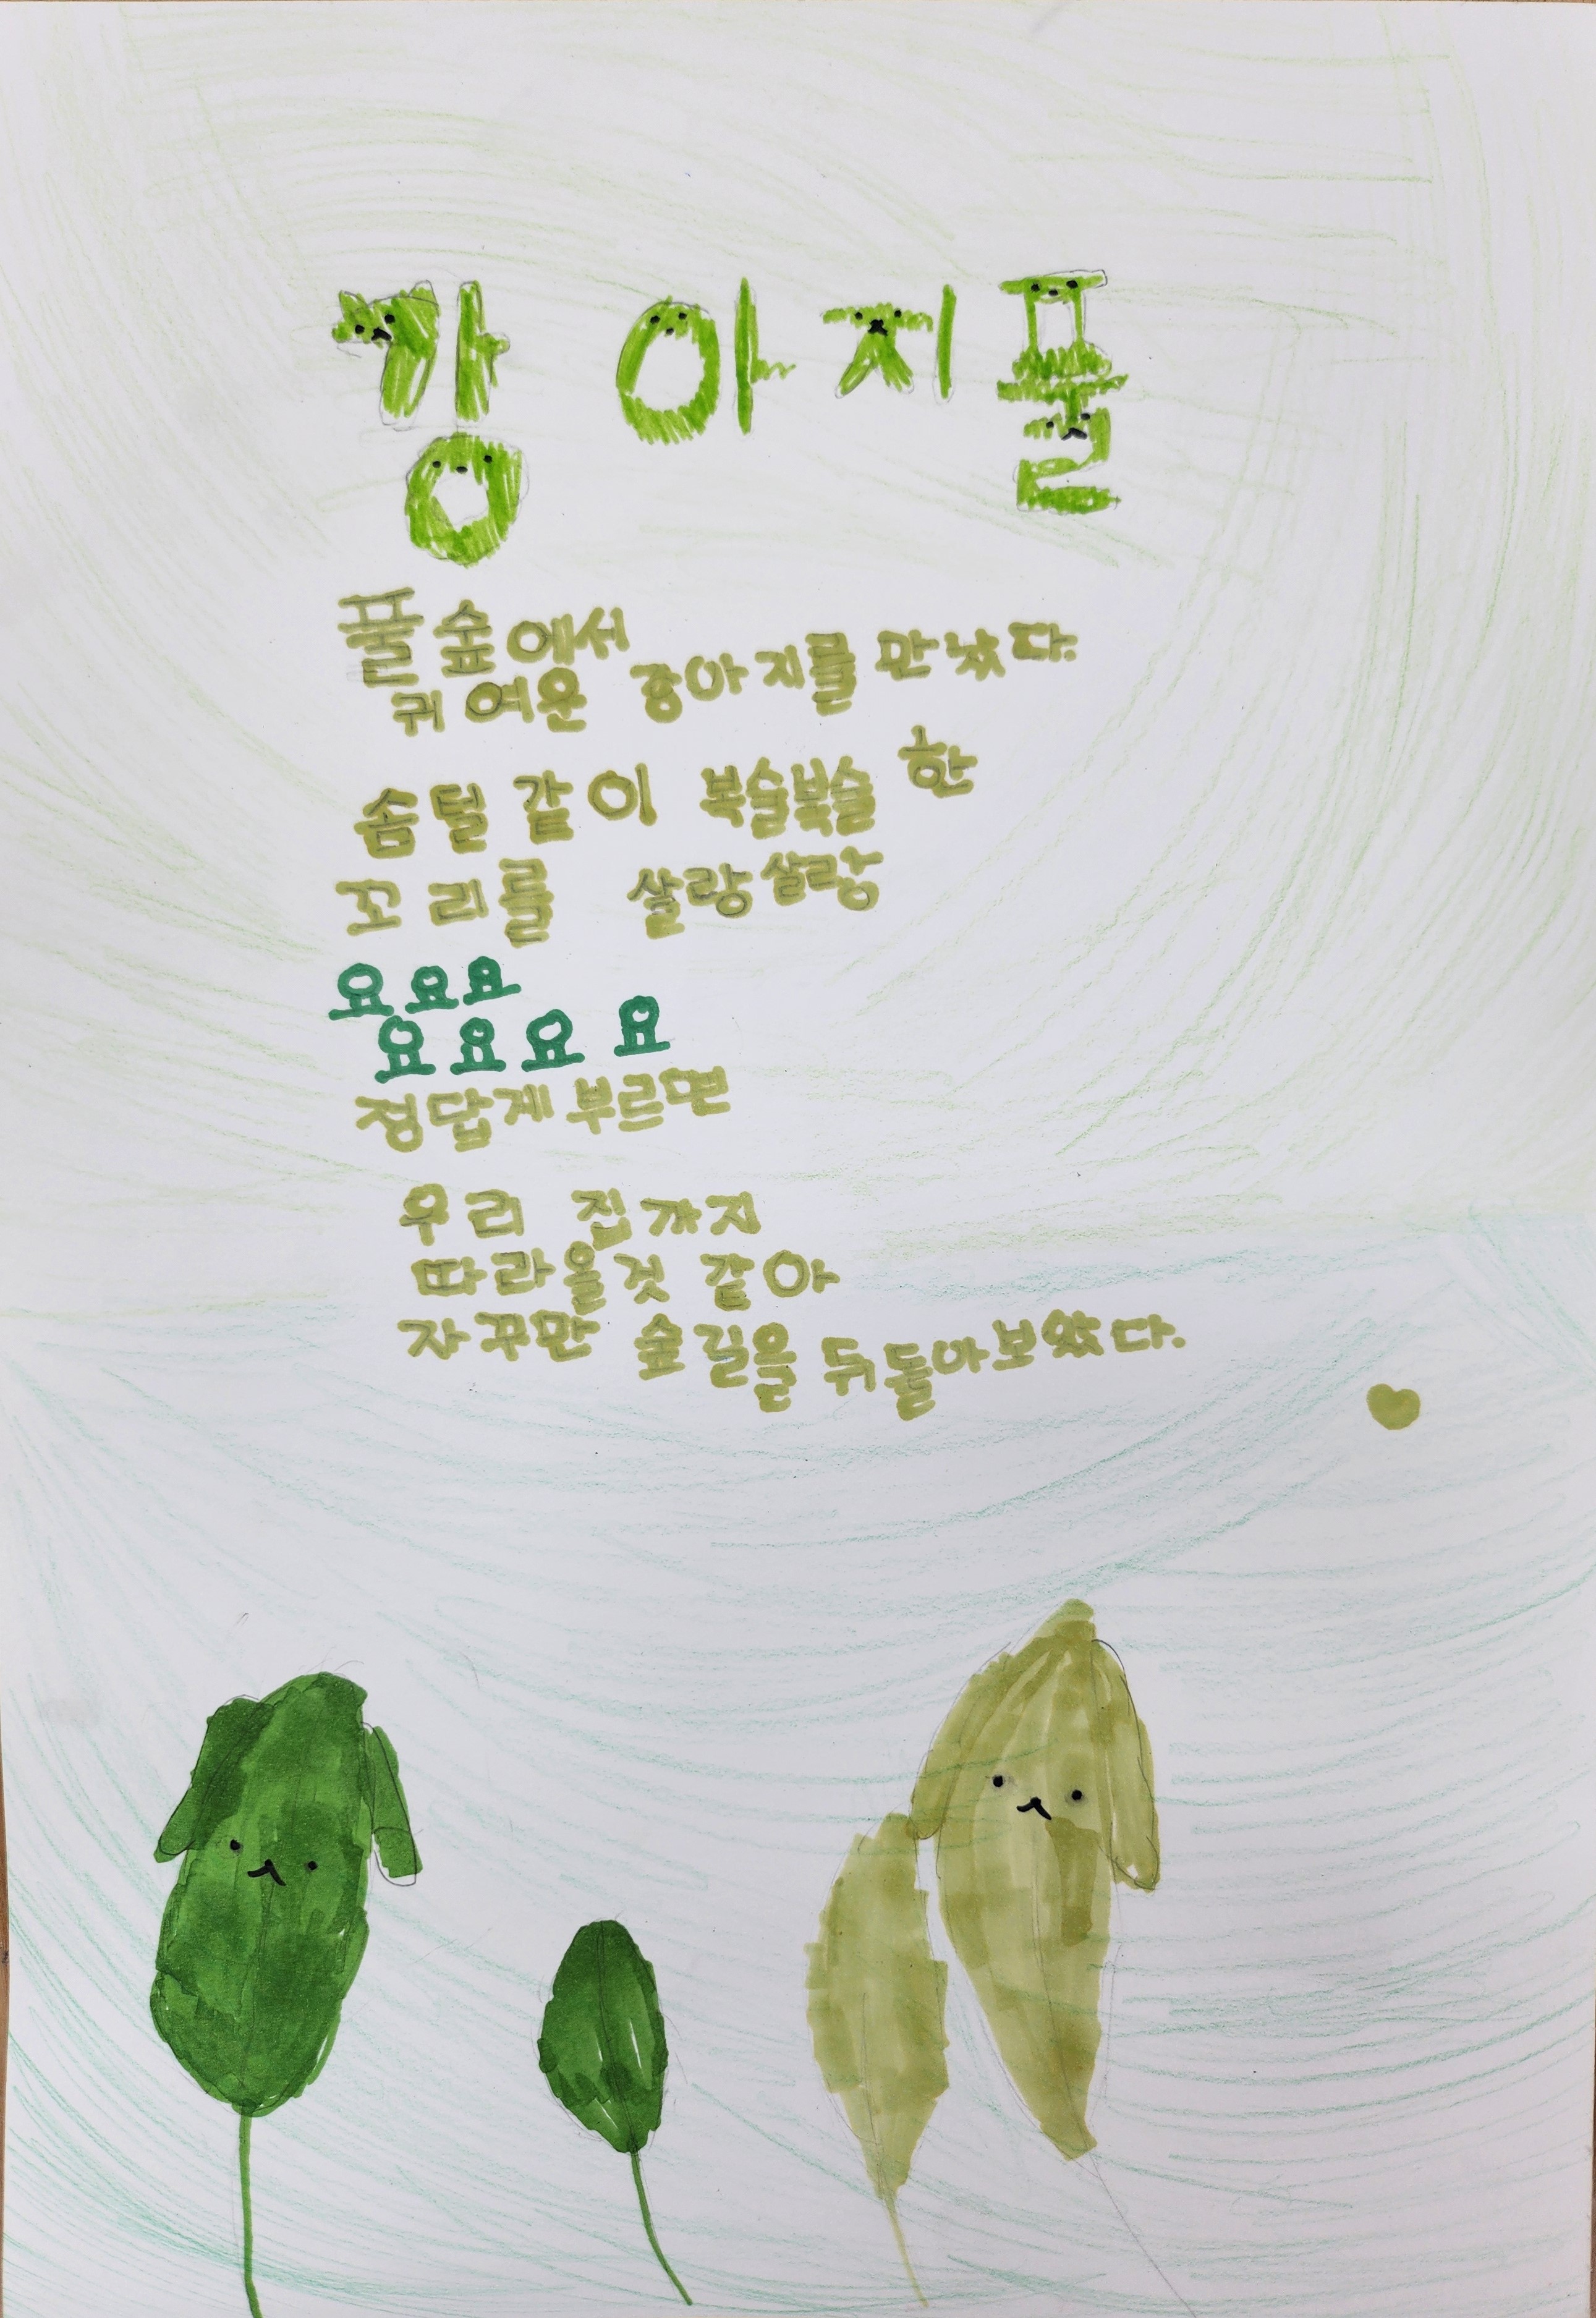 강아지풀
풀숲에서
귀여운 강아지를 만났다.
솜털 같이 복슬북슬 한
꼬리를 살랑살랑
요요요
요요요요
정답게 부르면
우리 집까지
따라올것 같아
자꾸만 숲길을 뒤돌아보았다.